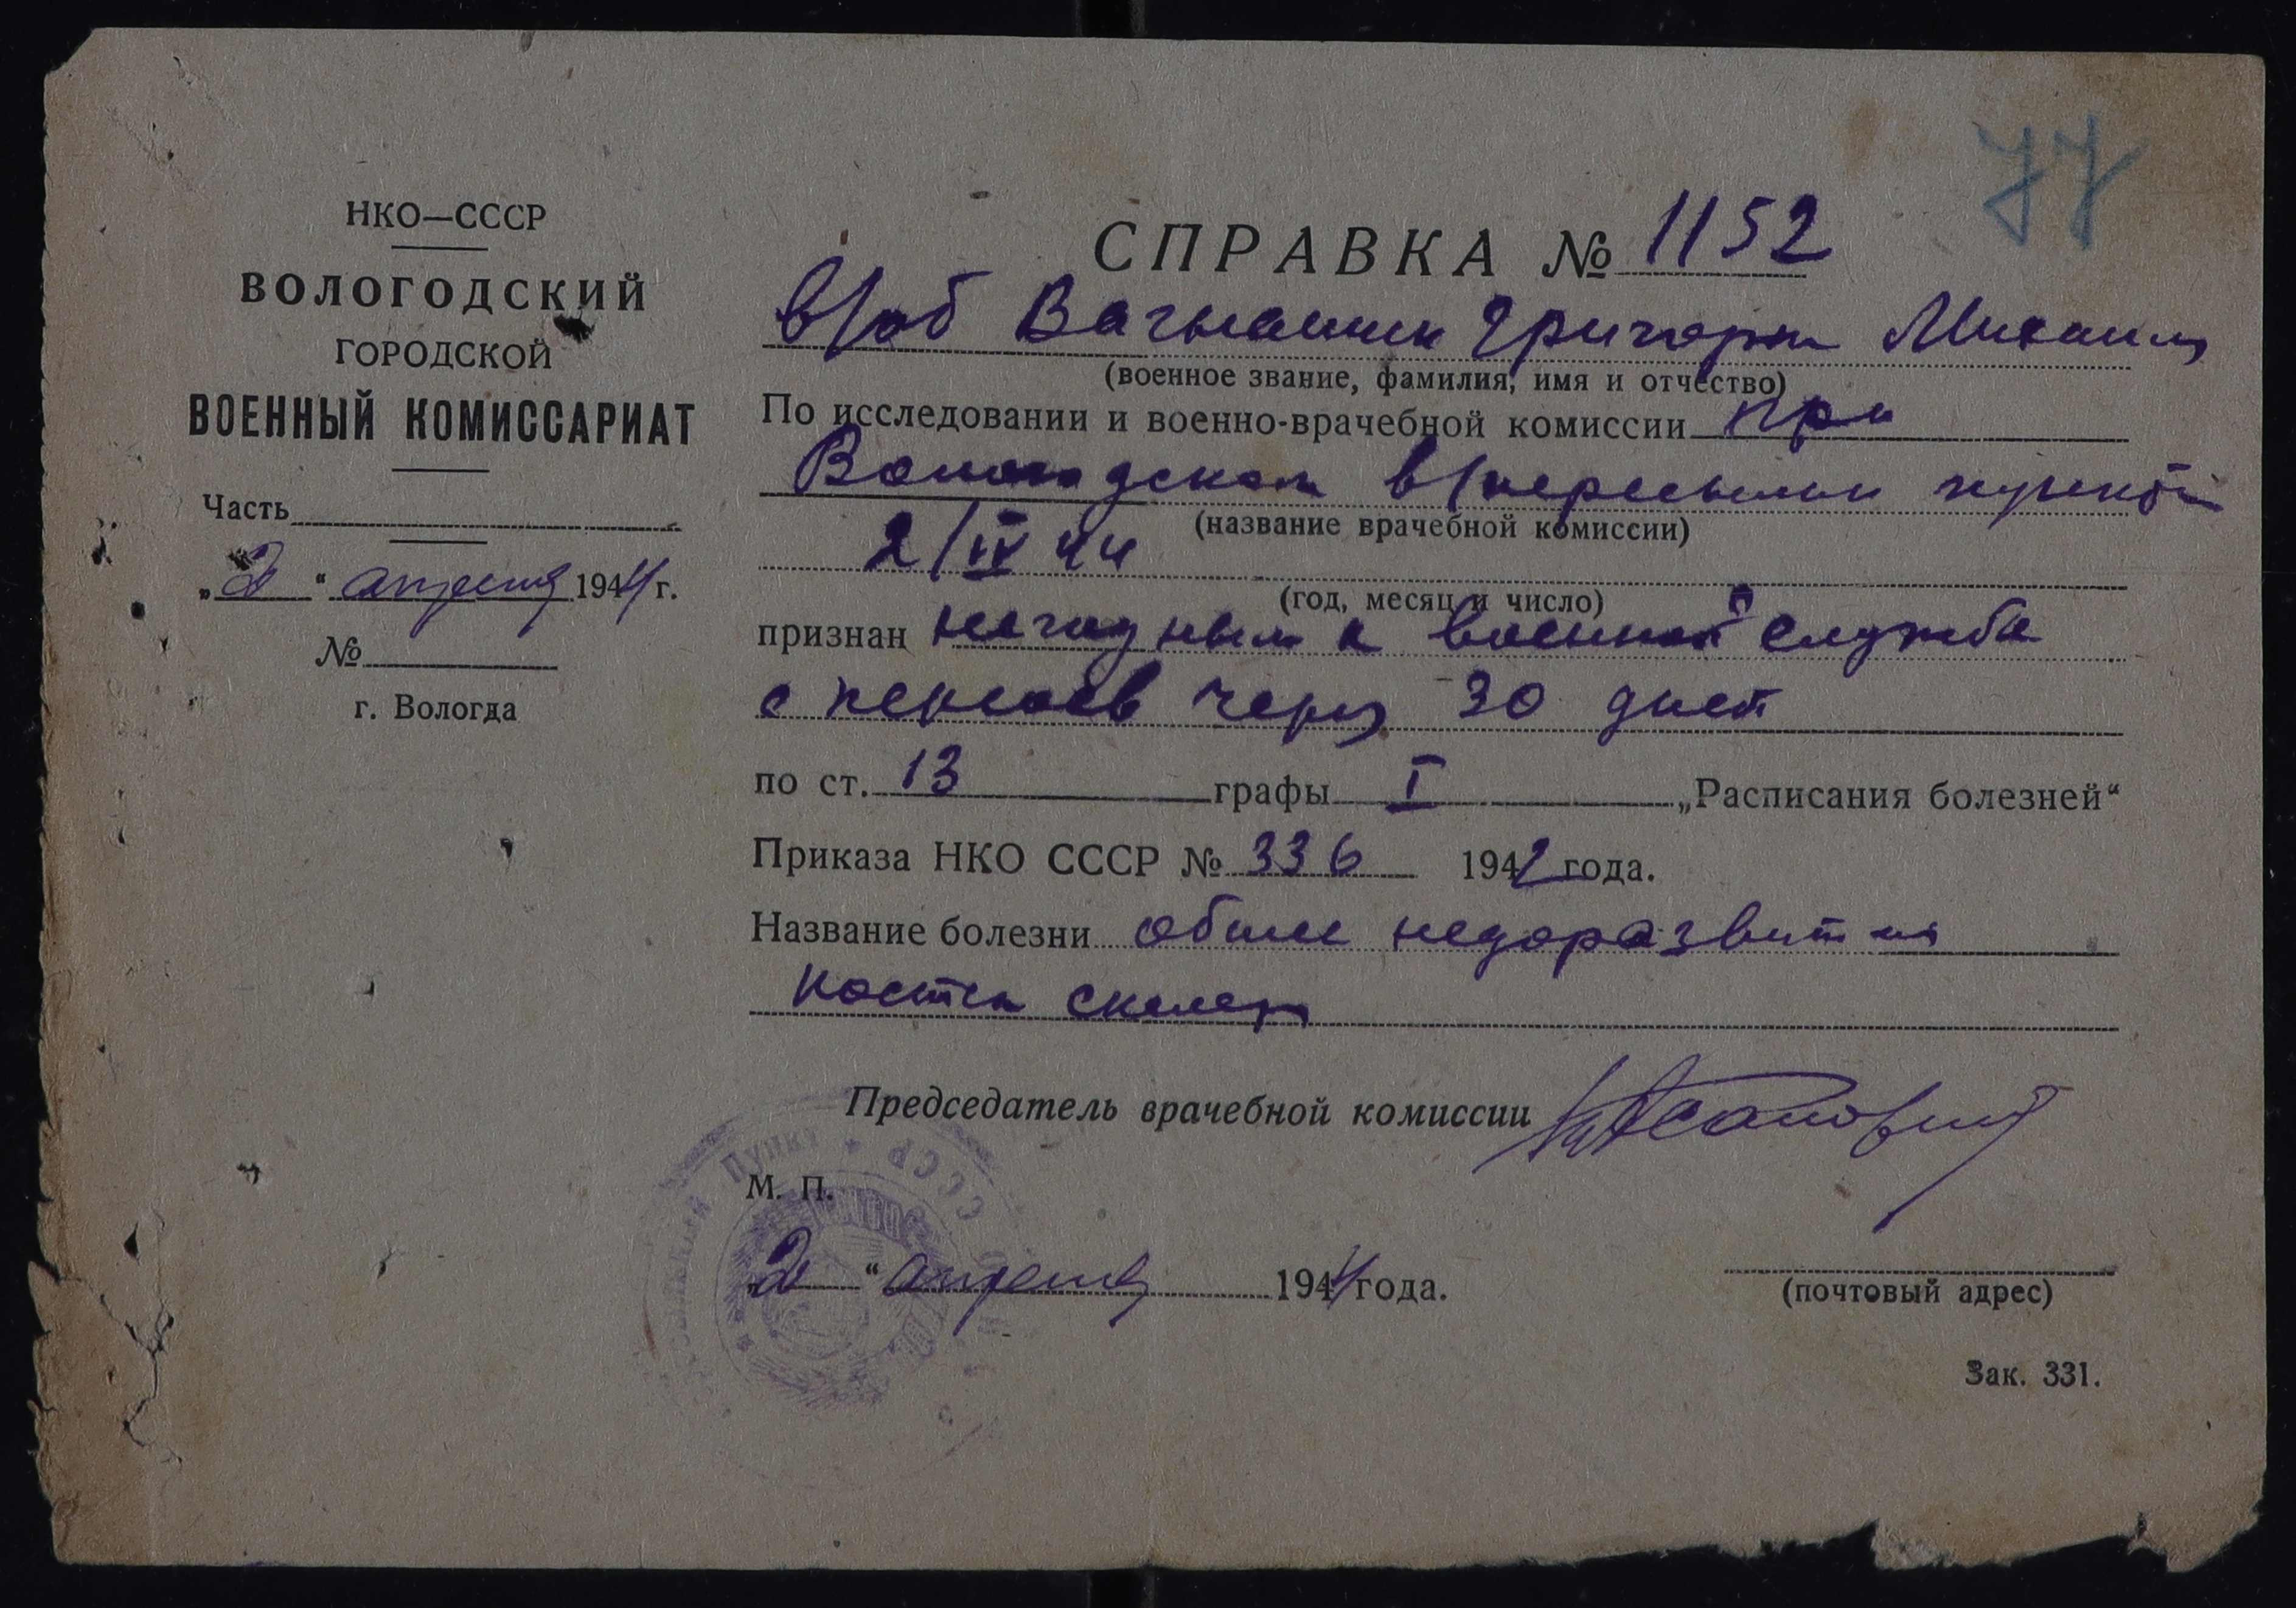 77
НКО—СССР
ВОЛОГОДСКИЙ
ГОРОДСКОЙ
ВОЕННЫЙ КОМИССАРИАТ
Часть
„2“ апреля 1944 г.
№
г. Вологда
СПРАВКА № 1152
в/об Григории Михаил
(военное звание, фамилия, имя и отчество)
По исследовании и военно-врачебной комиссии при
Вологодском в/пересылн пункте
(название врачебной комиссии)
2/IV 44
(год, месяц и число)
признан негодным к военной службе
с через 30 дней
по ст. 13 графы I „Расписания болезней“
Приказа НКО СССР № 336 1942 года.
Название болезни общее недоразвития
костей скелета
Председатель врачебной комиссии
Пункт ★ СССР
М. П.
2 “ апреля 1944 года.
(почтовый адрес)
Зак. 331.